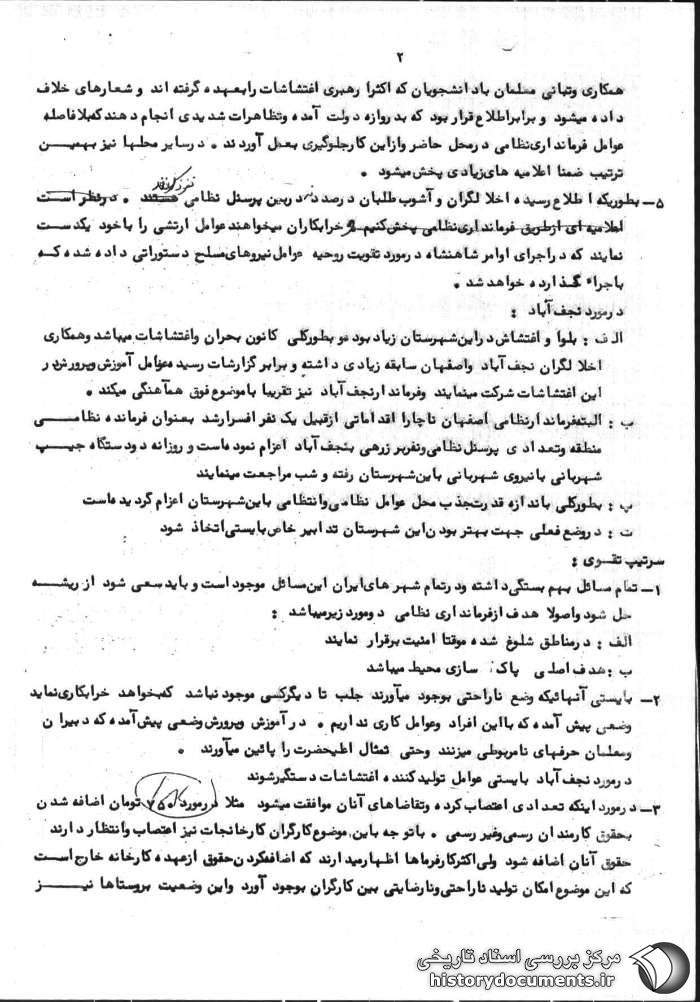 ۲
همکاری وتبانی معلمان بادانشجویان که اکثرا رهبری اغتشاشات رابعهده گرفته اند و شعارهای خلاف
داده میشود و برابراطلاع قرار بود که بدروازه دولت آمده وتظاهرات شدیدی انجام دهندکه بلافاصله
عوامل فرمانداری نظامی درمحل حاضر وازاین کارجلوگیری بعمل آوردند . درسایر محلها نیز بهمین
ترتیب ضمنا اعلامیه های زیادی پخش میشود .
۵ـ بطوریکه اطلاع رسیده اخلالگران و آشوب طلبان درصدد در بین پرسنل نظامی هستند . درنظر است
اعلامیه ای ازطریق فرمانداری نظامی پخش کنیم و خرابکاران میخواهند عوامل ارتشی را باخود یکدست
نمایند که دراجرای اوامر شاهنشاه درمورد تقویت روحیه عوامل نیروهای مسلح دستوراتی داده شده که
باجراء گذارده خواهد شد .
درمورد نجف آباد :
الف : بلوا و اغتشاش دراین شهرستان زیاد بوده و بطورکلی کانون بحران واغتشاشات میباشد وهمکاری
اخلالگران نجف آباد واصفهان سابقه زیادی داشته و برابر گزارشات رسیده عوامل آموزش وپرورش در
این اغتشاشات شرکت مینمایند وفرماندارنجف آباد نیز تقریبا باموضوع فوق هم آهنگی میکند .
ب : البته فرماندارنظامی اصفهان ناچارا اقداماتی ازقبیل یک نفر افسرارشد بعنوان فرمانده نظامی
منطقه وتعدادی پرسنل نظامی ونفربر زرهی بنجف آباد اعزام نموده است و روزانه دودستگاه جیپ
شهربانی بانیروی شهربانی باین شهرستان رفته و شب مراجعت مینمایند
پ : بطورکلی باندازه قدرت جذب محل عوامل نظامی وانتظامی باین شهرستان اعزام گردیده است
ت : دروضع فعلی جهت بهتر بودن این شهرستان تدابیر خاص بایستی اتخاذ شود
سرتیپ تقوی :
۱ـ تمام مسائل بهم بستگی داشته ودرتمام شهرهای ایران این مسائل موجود است و باید سعی شود از ریشه
حل شود واصولا هدف ازفرمانداری نظامی دومورد زیرمیباشد :
الف : درمناطق شلوغ شده موقتا امنیت برقرار نمایند
ب : هدف اصلی پاک سازی محیط میباشد
۲ـ بایستی آنهائیکه وضع ناراحتی بوجود میآورند جلب تا دیگرکسی موجود نباشد که بخواهد خرابکاری نماید
وضعی پیش آمده که بااین افراد وعوامل کاری نداریم . درآموزش وپرورش وضعی پیش آمده که دبیران
ومعلمان حرفهای نامربوطی میزنند وحتی تمثال اعلیحضرت را پائین میآورند .
درمورد نجف آباد بایستی عوامل تولیدکننده اغتشاشات دستگیرشوند
۳ـ درمورد اینکه تعدادی اعتصاب کرده وتقاضاهای آنان موافقت میشود مثلا درمورد ۷۵۰ تومان اضافه شدن
بحقوق کارمندان رسمی وغیر رسمی . باتوجه باین موضوع کارگران کارخانجات نیز اعتصاب وانتظار دارند
حقوق آنان اضافه شود ولی اکثرکارفرماها اظهارمیدارند که اضافه کردن حقوق ازعهده کارخانه خارج است
که این موضوع امکان تولید ناراحتی ونارضایتی بین کارگران بوجود آورد واین وضعیت بروستاها نیز
مرکز بررسی اسناد تاریخی
historydocuments.ir